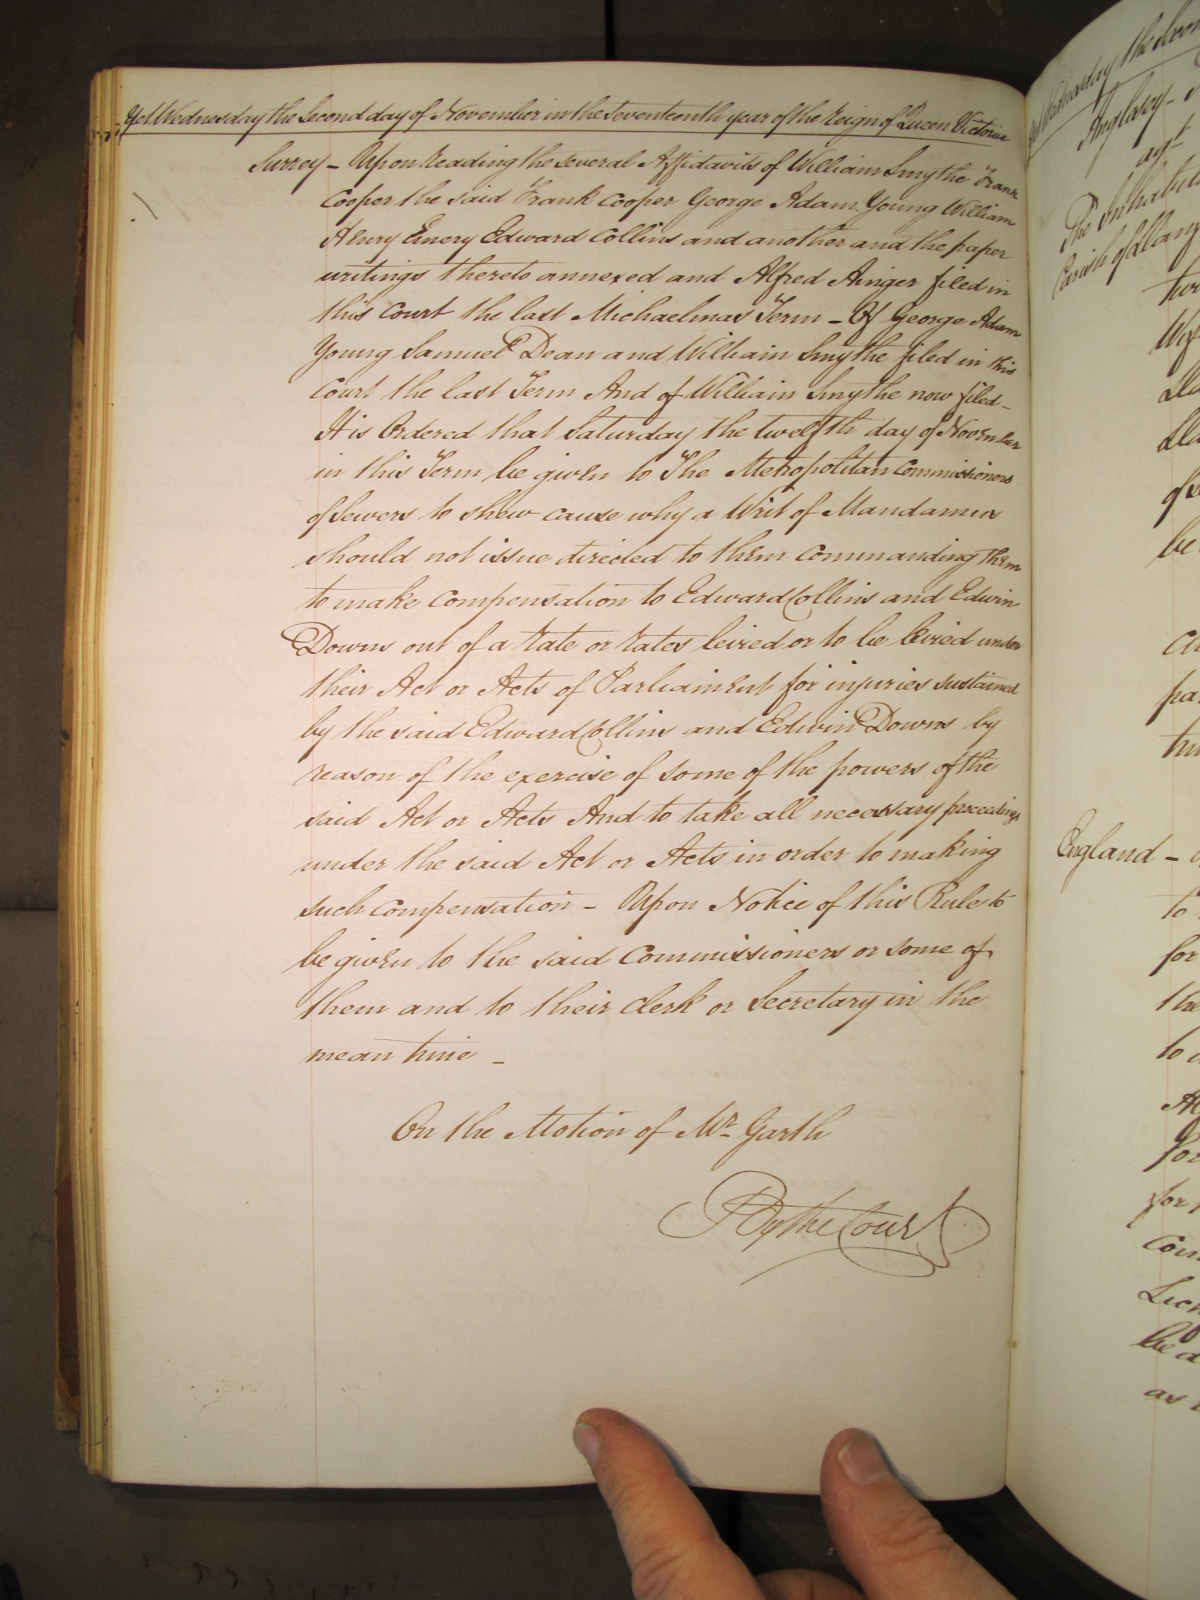 Yet Wednesday the Second day of November in the Seventeenth year of the Reign of Queen Victoria
Surrey - Upon reading the several Affidavits of William Smythe Frank
Cooper the said Frank Cooper George Adam Young William
Henry Emery Edward Collins and another and the paper
writings thereto annexed and Alfred Ainger filed in
this Court the last Michaelmas Term - Of George Adam
Young Samuel Dean and William Smythe filed in this
Court the last Term And of William Smythe now filed -
It is Ordered that Saturday the twelfth day of November
in this Term be given to The Metropolitan Commissioners
of Sewers to shew cause why a Writ of Mandamus
should not issue directed to them commanding them
to make compensation to Edward Collins and Edwin
Downs out of a rate or rates leired or to be leired under
their Act or Acts of Parliament for injuries sustained
by the said Edward Collins and Edwin Downs by
reason of the exercise of some of the powers of the
said Act or Acts And to take all necessary proceedings
under the said Act or Acts in order to making
such compensation - Upon Notice of this Rule to
be given to the said Commissioners or some of
them and to their Clerk or Secretary in the
mean time -
On the Motion of Mr. Garth
By the Court
Wednesday the Second
Anglesey -
agt
The Inhabit
Parish of Llang
be
pa
England -
to
for
the
to
for
for
Com
be a
as